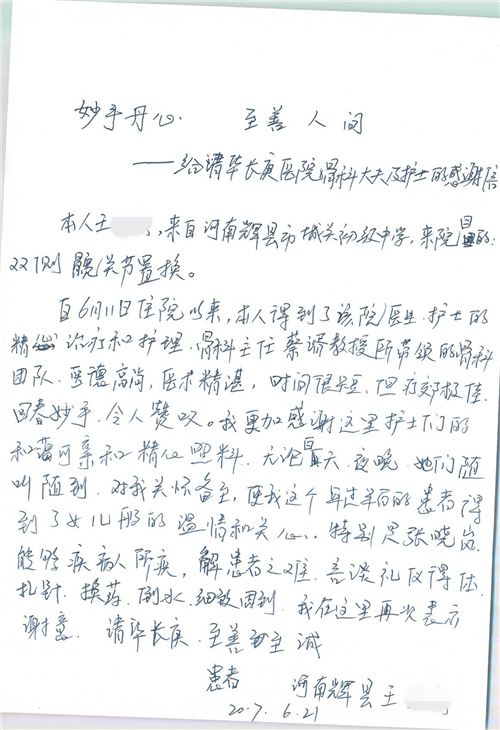 妙手丹心. 至善人间
——给清华长庚医院骨科大夫及护士的感谢信
本人王 , 来自河南辉县市城关初级中学, 来院目的:
双侧髋关节置换。
自6月11日住院以来, 本人得到了该院医生. 护士的
精心治疗和护理. 骨科主任蔡谞教授所带领的骨科
团队. 医德高尚, 医术精湛, 时间很短, 但疗效极佳.
回春妙手. 令人赞叹。我更加感谢这里护士们的
和蔼可亲和精心照料. 无论白天. 夜晚. 她们随
叫随到. 对我关怀备至, 使我这个年过半百的患者得
到了女儿般的温情和关心. 特别是张晓岚
能够疾病人所疾, 解患者之难. 言谈礼仪得体.
扎针. 换药. 倒水. 细致周到. 我在这里再次表示
谢意. 清华长庚. 至善至诚
患者 河南辉县王
2017. 6. 21